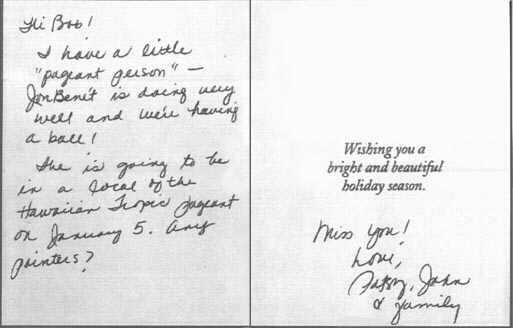 Hi Bob!
I have a little
"pageant person" —
JonBenét is doing very
well and we're having
a ball!
She is going to be
in a local of the
Hawaiian Tropic pageant
on January 5. Any
pointers?
Wishing you a
bright and beautiful
holiday season.
Miss You!
Love,
Patsy, John
& family